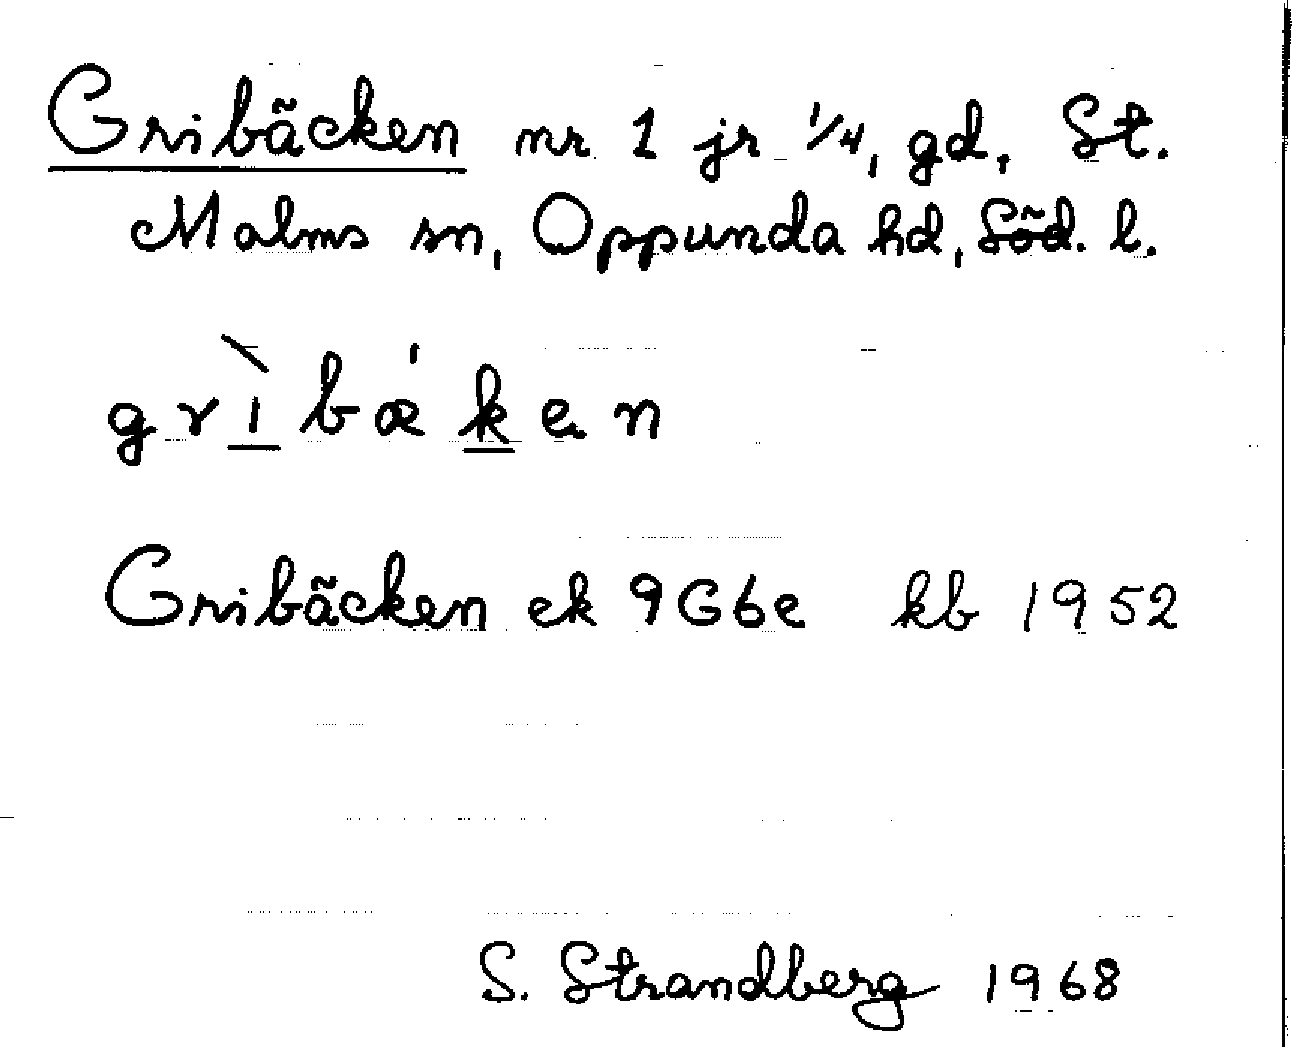 Gribäcken nr 1 jr 1/4, gd, St.
Malms sn, Oppunda hd, Söd. l.
grìbǽken
Gribäcken ek 9G6e kb 1952
S. Strandberg 1968